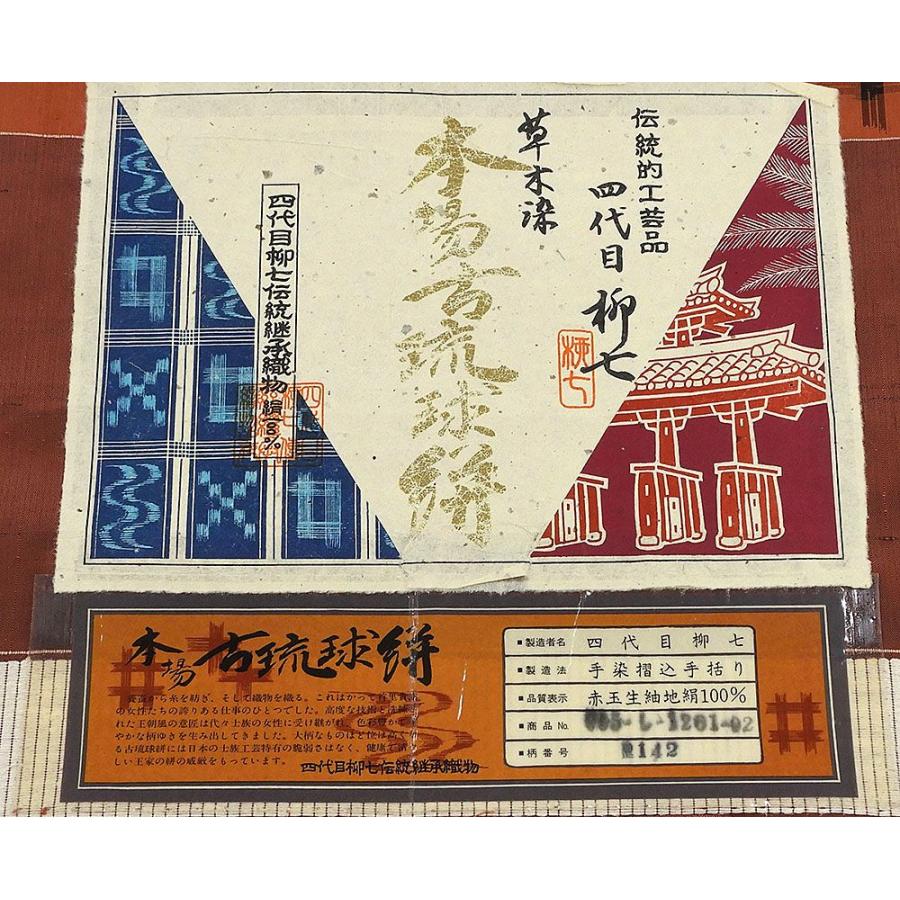 伝統的工芸品
四代目 柳七
柳七
草木染
本場古琉球絣
四代目柳七伝統継承織物 絹100%
本場 古琉球絣
の女性たちの誇りある仕事のひとつでした。高度な技術と洗練
れた王朝風の意匠は代々士族の女性に受け継がれ、色彩豊かで
やかな柄ゆきを生み出してきました。大柄なものほど位は高く
る古琉球絣には日本の土族工芸特有の脆弱さはなく、健康で清
しい王家の絣の威厳をもっています。
四代目柳七伝統継承織物
■製造者名 四代目柳七
■製造法 手染摺込手括り
■品質表示 赤玉生紬地絹100%
■商品No. 005-L-1201-02
■柄番号 142